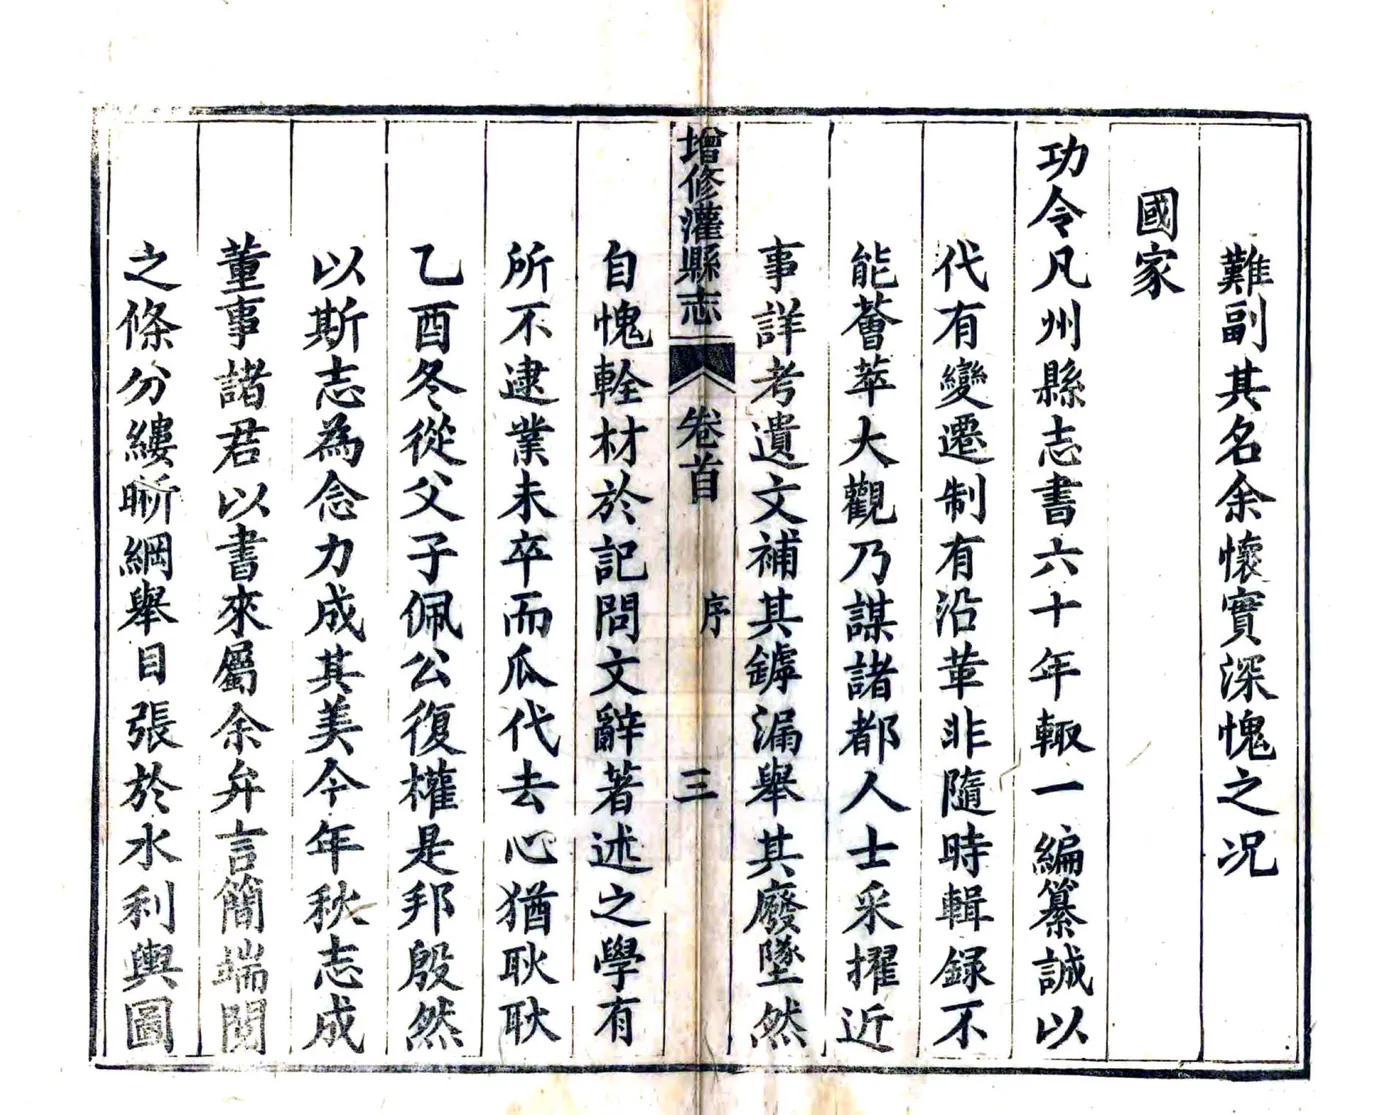 難副其名余懷實深愧之況
國家
功令凡州縣志書六十年輙一編纂誠以
代有變遷制有沿革非隨時輯録不
能薈萃大觀乃謀諸都人士采擢近
事詳考遺文補其罅漏舉其廢墜然
增修灌縣志 卷首 序 三
自愧輇材於記問文辭著述之學有
所不逮業未卒而瓜代去心猶耿耿
乙酉冬從父子佩公復權是邦殷然
以斯志為念力成其美今年秋志成
董事諸君以書來屬余弁言簡端閱
之條分縷晣綱舉目張於水利輿圖